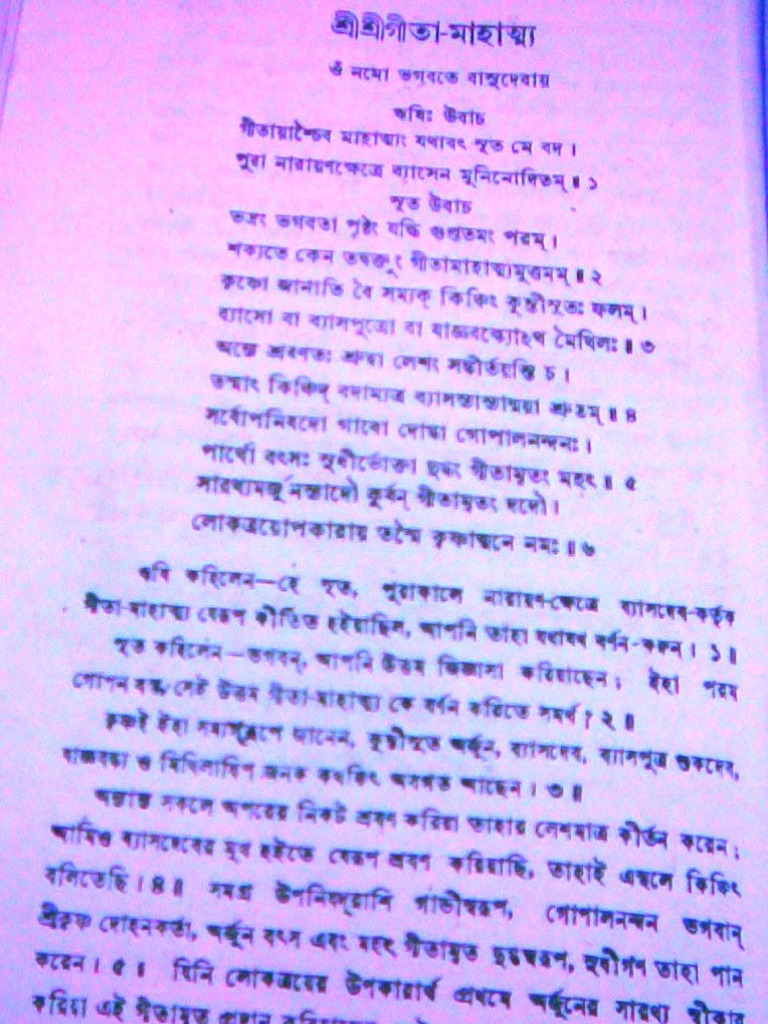 শ্রীশ্রীগীতা-মাহাত্ম্য
ওঁ নমো ভগবতে বাসুদেবায়
ঋষিঃ উবাচ
গীতায়াশ্চৈব মাহাত্ম্যং যথাবৎ সূত মে বদ ।
পুরা নারায়ণক্ষেত্রে ব্যাসেন মুনিনোদিতম্ ॥ ১
সূত উবাচ
ভদ্রং ভগবতা পৃষ্টং যদ্ধি গুপ্ততমং পরম্ ।
শক্যতে কেন তদ্বক্তুং গীতামাহাত্ম্যমুত্তমম্ ॥ ২
কৃষ্ণো জানাতি বৈ সম্যক্ কিঞ্চিৎ কুন্তীসুতঃ ফলম্ ।
ব্যাসো বা ব্যাসপুত্রো বা যাজ্ঞবল্ক্যোহথ মৈথিলঃ ॥ ৩
অন্যে শ্রবণতঃ শ্রুত্বা লেশং সঙ্কীর্তয়ন্তি চ ।
তস্মাৎ কিঞ্চিদ্ বদাম্যত্র ব্যাসস্যাস্যান্ময়া শ্রুতম্ ॥ ৪
সর্বোপনিষদো গাবো দোগ্ধা গোপালনন্দনঃ ।
পার্থো বৎসঃ সুধীর্ভোক্তা দুগ্ধং গীতামৃতং মহৎ ॥ ৫
সারথ্যমর্জুনস্যাদৌ কুর্বন্ গীতামৃতং দদৌ ।
লোকত্রয়োপকারায় তস্মৈ কৃষ্ণাত্মনে নমঃ ॥ ৬
ঋষি কহিলেন—হে সূত, পুরাকালে নারায়ণ-ক্ষেত্রে ব্যাসদেব-কর্তৃক
গীতা-মাহাত্ম্য যেরূপ কীর্তিত হইয়াছিল, আপনি তাহা যথাযথ বর্ণন করুন । ১ ॥
সূত কহিলেন—ভগবন্, আপনি উত্তম জিজ্ঞাসা করিয়াছেন ; ইহা পরম
গোপন বস্তু, সেই উত্তম গীতা-মাহাত্ম্য কে বর্ণন করিতে সমর্থ ? ২ ॥
কৃষ্ণই ইহা সম্যক্‌রূপে জানেন, কুন্তীসুত অর্জুন, ব্যাসদেব, ব্যাসপুত্র শুকদেব,
যাজ্ঞবল্ক্য ও মিথিলাধিপ জনক কথঞ্চিৎ অবগত আছেন । ৩ ॥
অন্যান্য সকলে অপরের নিকট শ্রবণ করিয়া তাহার লেশমাত্র কীর্তন করেন ;
আমিও ব্যাসদেবের মুখ হইতে যেরূপ শ্রবণ করিয়াছি, তাহাই এস্থলে কিঞ্চিৎ
বলিতেছি । ৪ ॥ সমগ্র উপনিষদ্‌রাশি গাভীস্বরূপ, গোপালনন্দন ভগবান্
শ্রীকৃষ্ণ দোহনকর্তা, অর্জুন বৎস এবং মহৎ গীতামৃত দুগ্ধস্বরূপ, সুধীগণ তাহা পান
করেন । ৫ । যিনি লোকত্রয়ের উপকারার্থ প্রথমে অর্জুনের সারথ্য স্বীকার
করিয়া এই গীতামৃত প্রদান